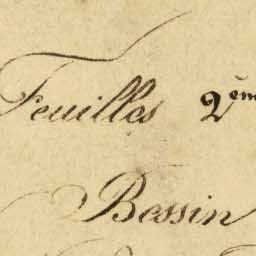 Feuilles 2em
Bessin